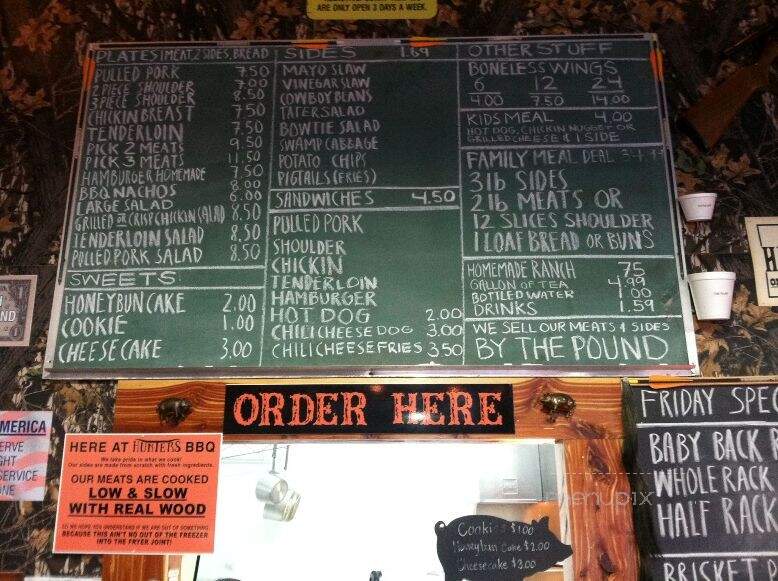 ARE ONLY OPEN 3 DAYS A WEEK.
PLATES (MEAT, 2 SIDES, BREAD
PULLED PORK 7.50
2 PIECE SHOULDER 7.00
3 PIECE SHOULDER 8.50
CHICKEN BREAST 7.50
TENDERLOIN 7.50
PICK 2 MEATS 9.50
PICK 3 MEATS 11.50
HAMBURGER HOMEMADE 7.50
BBQ NACHOS 8.00
LARGE SALAD 6.00
GRILLED OR CRISP CHICKEN SALAD 8.50
TENDERLOIN SALAD 8.50
PULLED PORK SALAD 8.50
SWEETS
HONEYBUN CAKE 2.00
COOKIE 1.00
CHEESE CAKE 3.00
SIDES 1.69
MAYO SLAW
VINEGAR SLAW
COWBOY BEANS
TATER SALAD
BOWTIE SALAD
SWAMP CABBAGE
POTATO CHIPS
PIGTAILS (FRIES)
SANDWICHES 4.50
PULLED PORK
SHOULDER
CHICKIN
TENDERLOIN
HAMBURGER
HOT DOG 2.00
CHILI CHEESE DOG 3.00
CHILI CHEESE FRIES 3.50
OTHER STUFF
BONELESS WINGS
6 12 24
4.00 7.50 14.00
KIDS MEAL 4.00
HOT DOG, CHICKIN NUGGET OR
GRILLED CHEESE & 1 SIDE
FAMILY MEAL DEAL
3 lb SIDES
2 lb MEATS OR
12 SLICES SHOULDER
1 LOAF BREAD OR BUNS
HOMEMADE RANCH 75
GALLON OF TEA 4.99
BOTTLED WATER 1.00
DRINKS 1.59
WE SELL OUR MEATS & SIDES
BY THE POUND
ORDER HERE
MERICA
ERVE
GHT
SERVICE
NE
HERE AT HUNTERS BBQ
We take pride in what we cook!
Our sides are made from scratch with fresh ingredients.
OUR MEATS ARE COOKED
LOW & SLOW
WITH REAL WOOD
SO WE HOPE YOU UNDERSTAND IF WE ARE OUT OF SOMETHING
BECAUSE THIS AIN'T NO OUT OF THE FREEZER
INTO THE FRYER JOINT!
menupix
Cookies $1.00
Honeybun Cake $2.00
Cheesecake $3.00
FRIDAY SPEC
BABY BACK R
WHOLE RACK
HALF RACK
BRISKET P